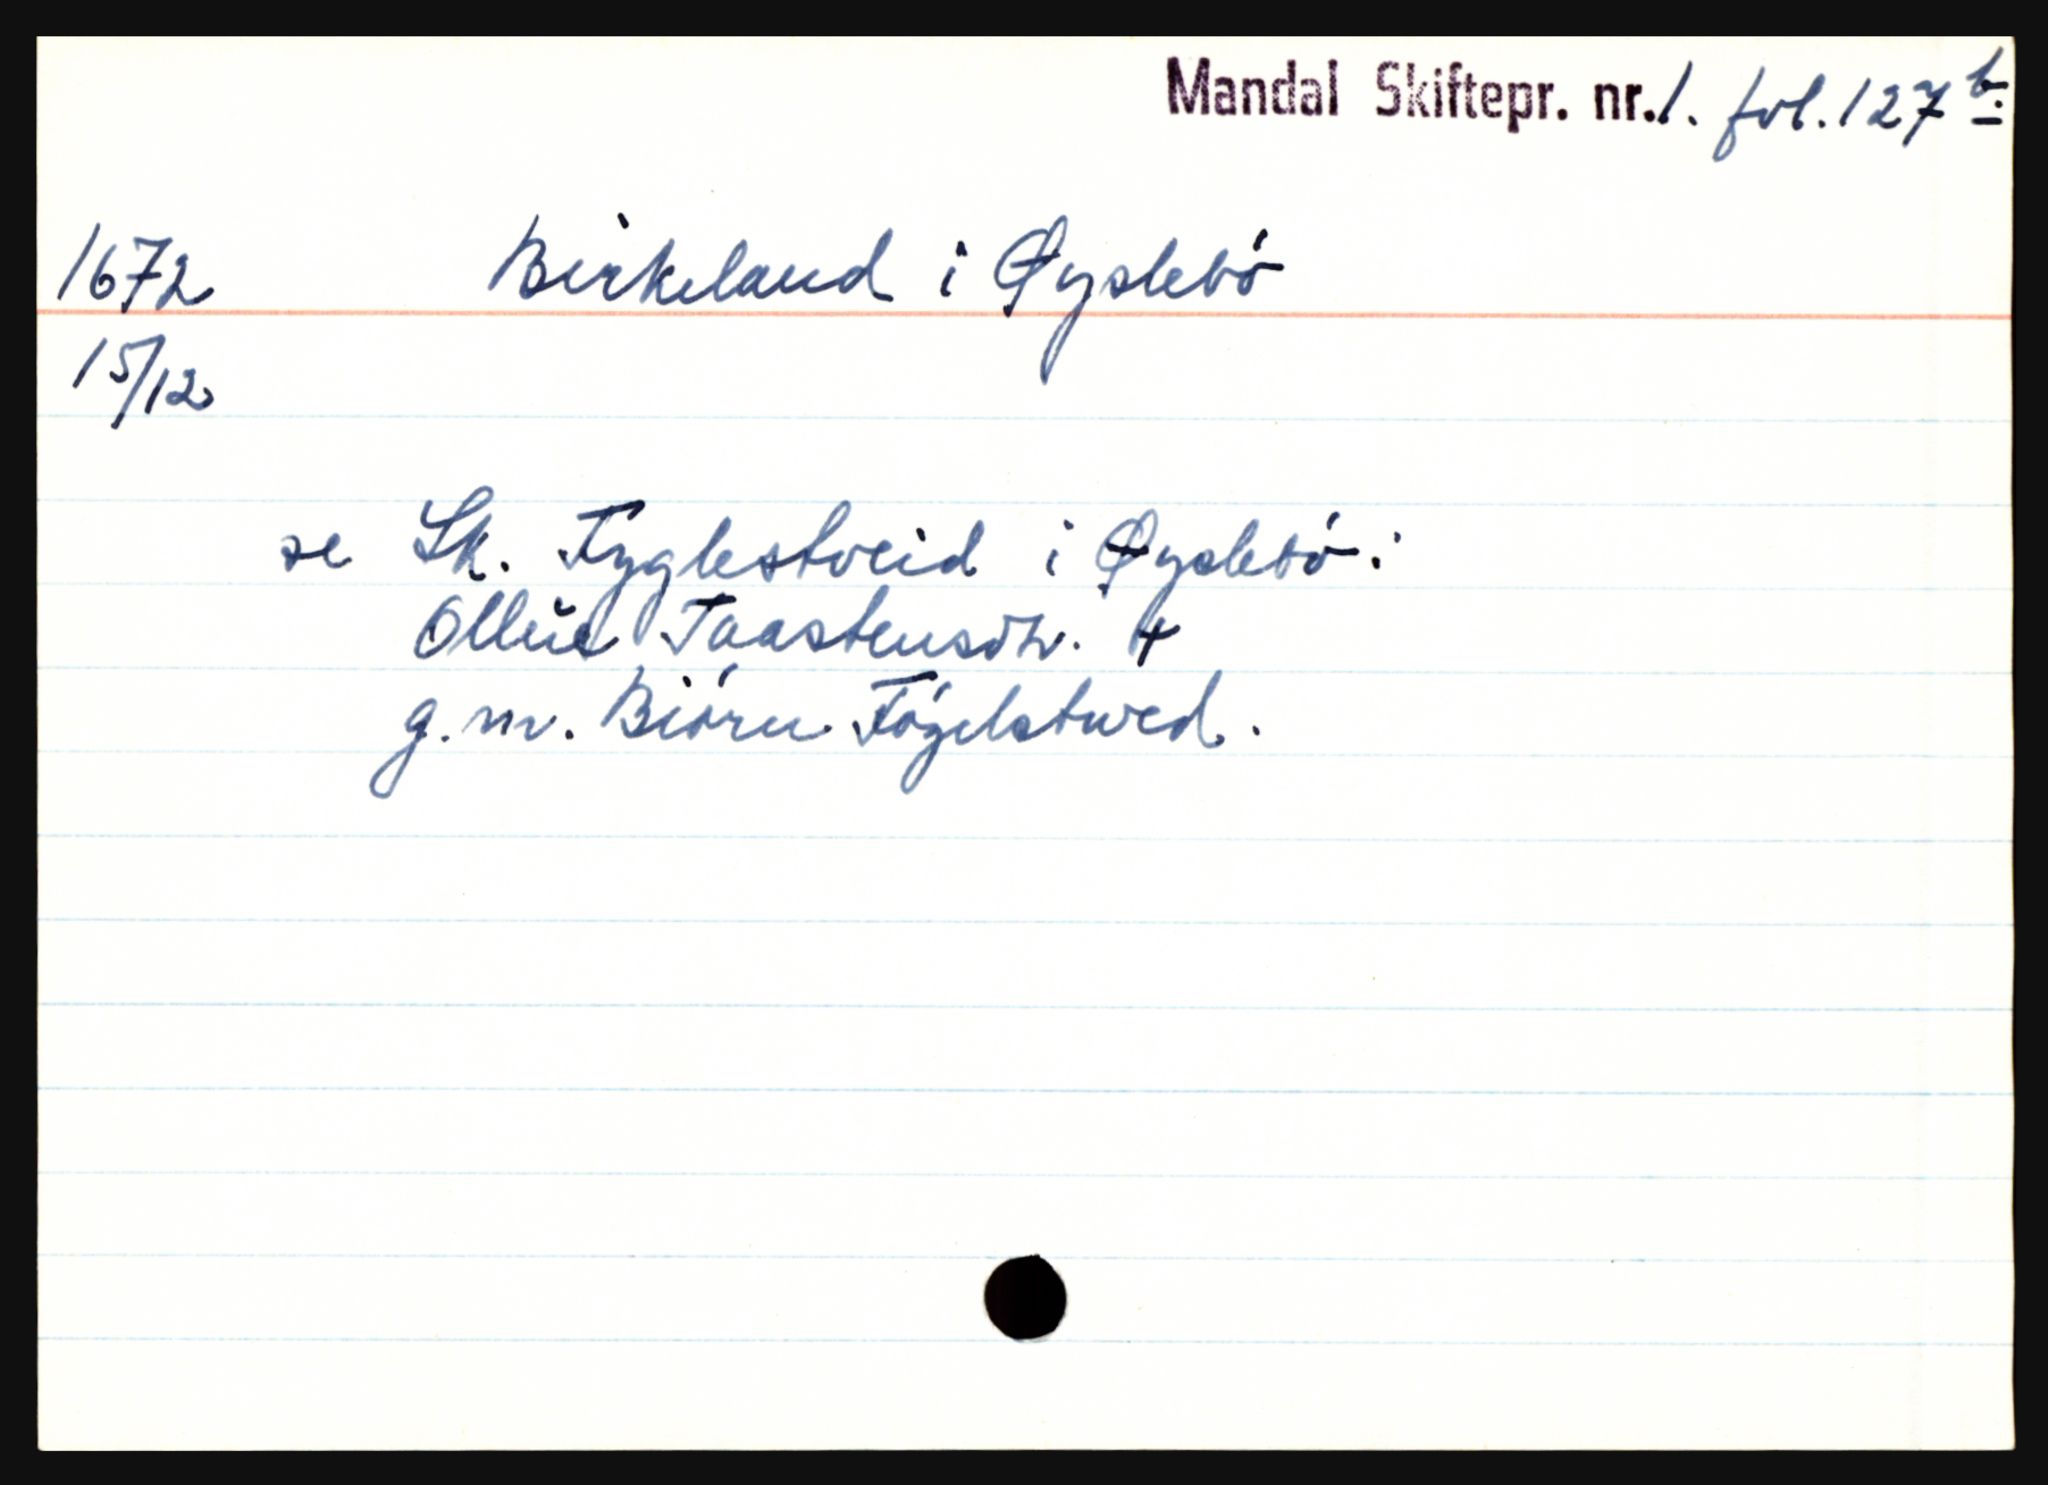 Mandal Skiftepr. nr. 1. fol. 127 b.
1672 Birkeland i Øyslebö
15/12
se Sk. Fyglestveid i Øyslebö:
Ollue Taastensdr. +
g. m. Biörn Fögelstwed.